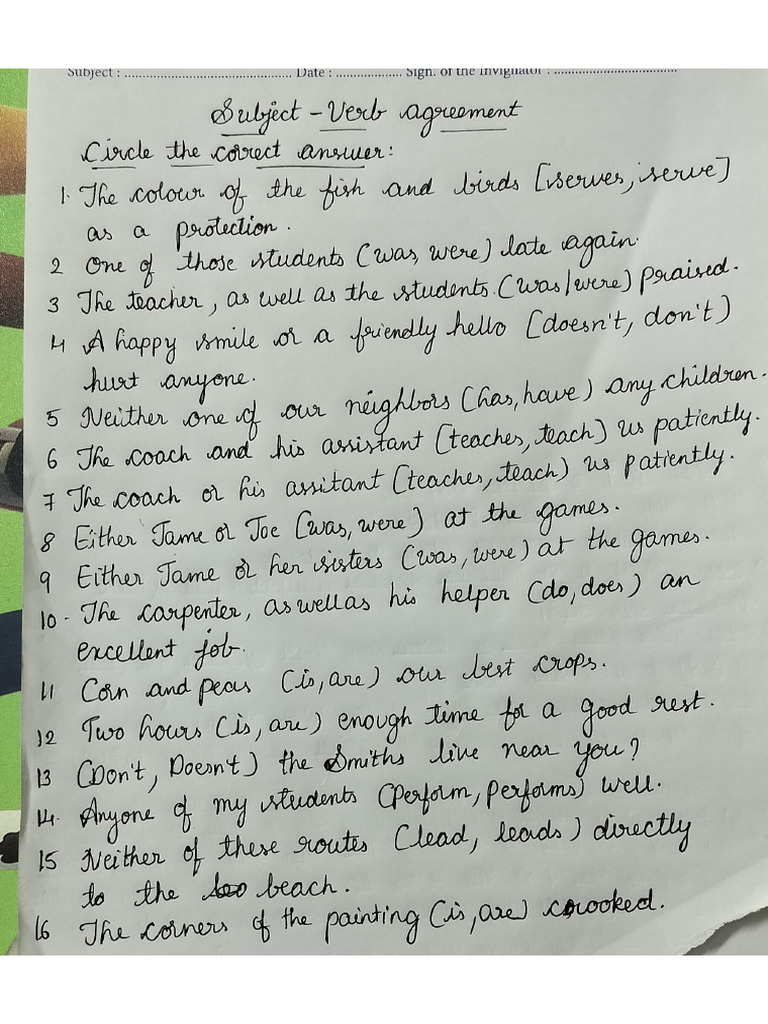 Subject : ............................................. Date : .................. Sign. of the Invigilator : .................................
Subject - Verb agreement
Circle the correct answer:
1. The colour of the fish and birds [serves, serve]
as a protection.
2 One of those students (was, were) late again.
3 The teacher, as well as the students. (was/were) praised.
4 A happy smile or a friendly hello [doesn't, don't)
hurt anyone.
5 Neither one of our neighbors (has, have) any children.
6 The coach and his assistant [teaches, teach] us patiently.
7 The coach or his assitant [teaches, teach) us patiently.
8 Either Jame or Joe [was, were) at the games.
9 Either Jame or her sisters (was, were) at the games.
10. The carpenter, as well as his helper (do, does) an
excellent job.
11 Corn and peas (is, are) our best crops.
12 Two hours (is, are) enough time for a good rest.
13 (Don't, Doesn't) the Smiths live near you?
14. Anyone of my students (Perform, performs) well.
15 Neither of these routes (lead, leads) directly
to the beach.
16 The corners of the painting (is, are) crooked.